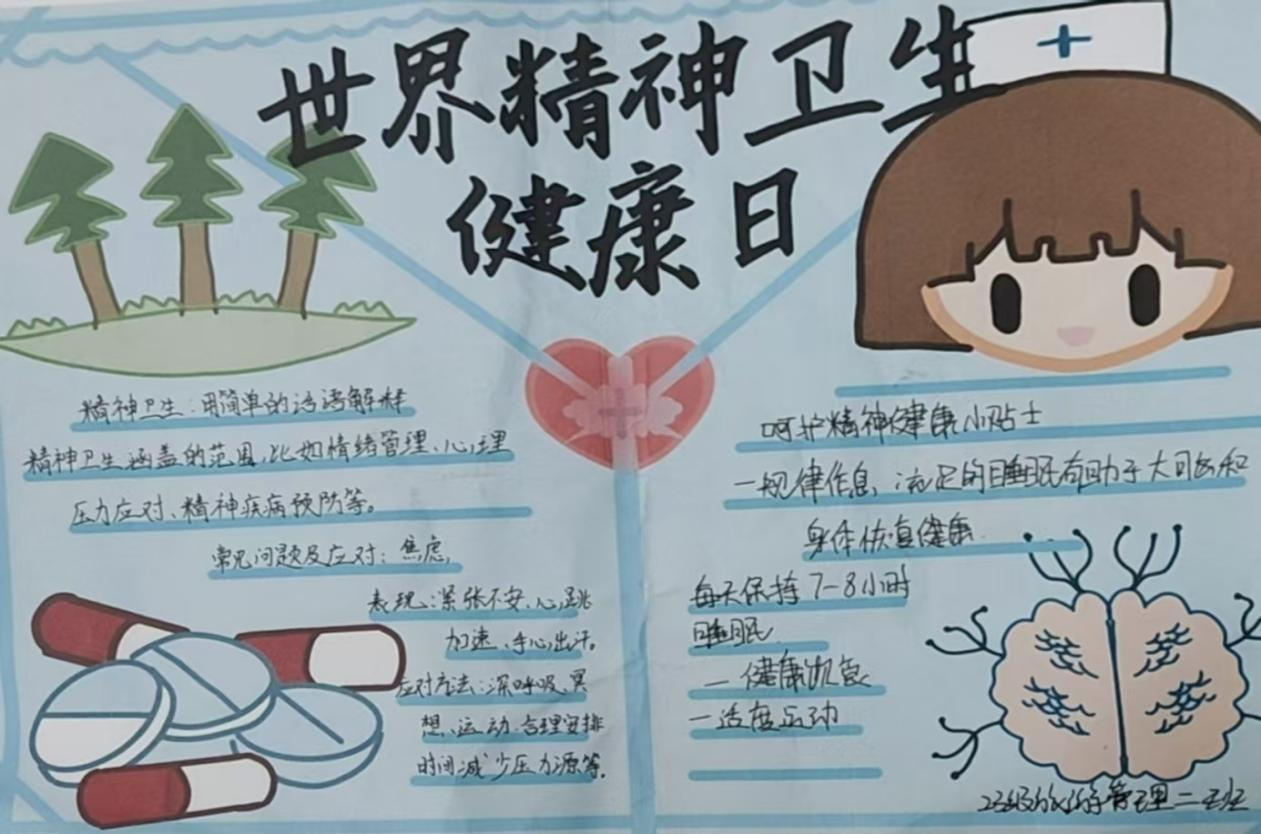 世界精神卫生
健康日
精神卫生:用简单的话语解释
精神卫生涵盖的范围,比如情绪管理、心理
压力应对、精神疾病预防等。
常见问题及应对:焦虑,
表现:紧张不安、心跳
加速、手心出汗。
应对方法:深呼吸、冥
想、运动、合理安排
时间减少压力源等。
呵护精神健康小贴士
一规律作息,充足的睡眠有助于大脑和
身体恢复健康
每天保持7-8小时
睡眠
一健康饮食
一适度运动
23级 管理二班